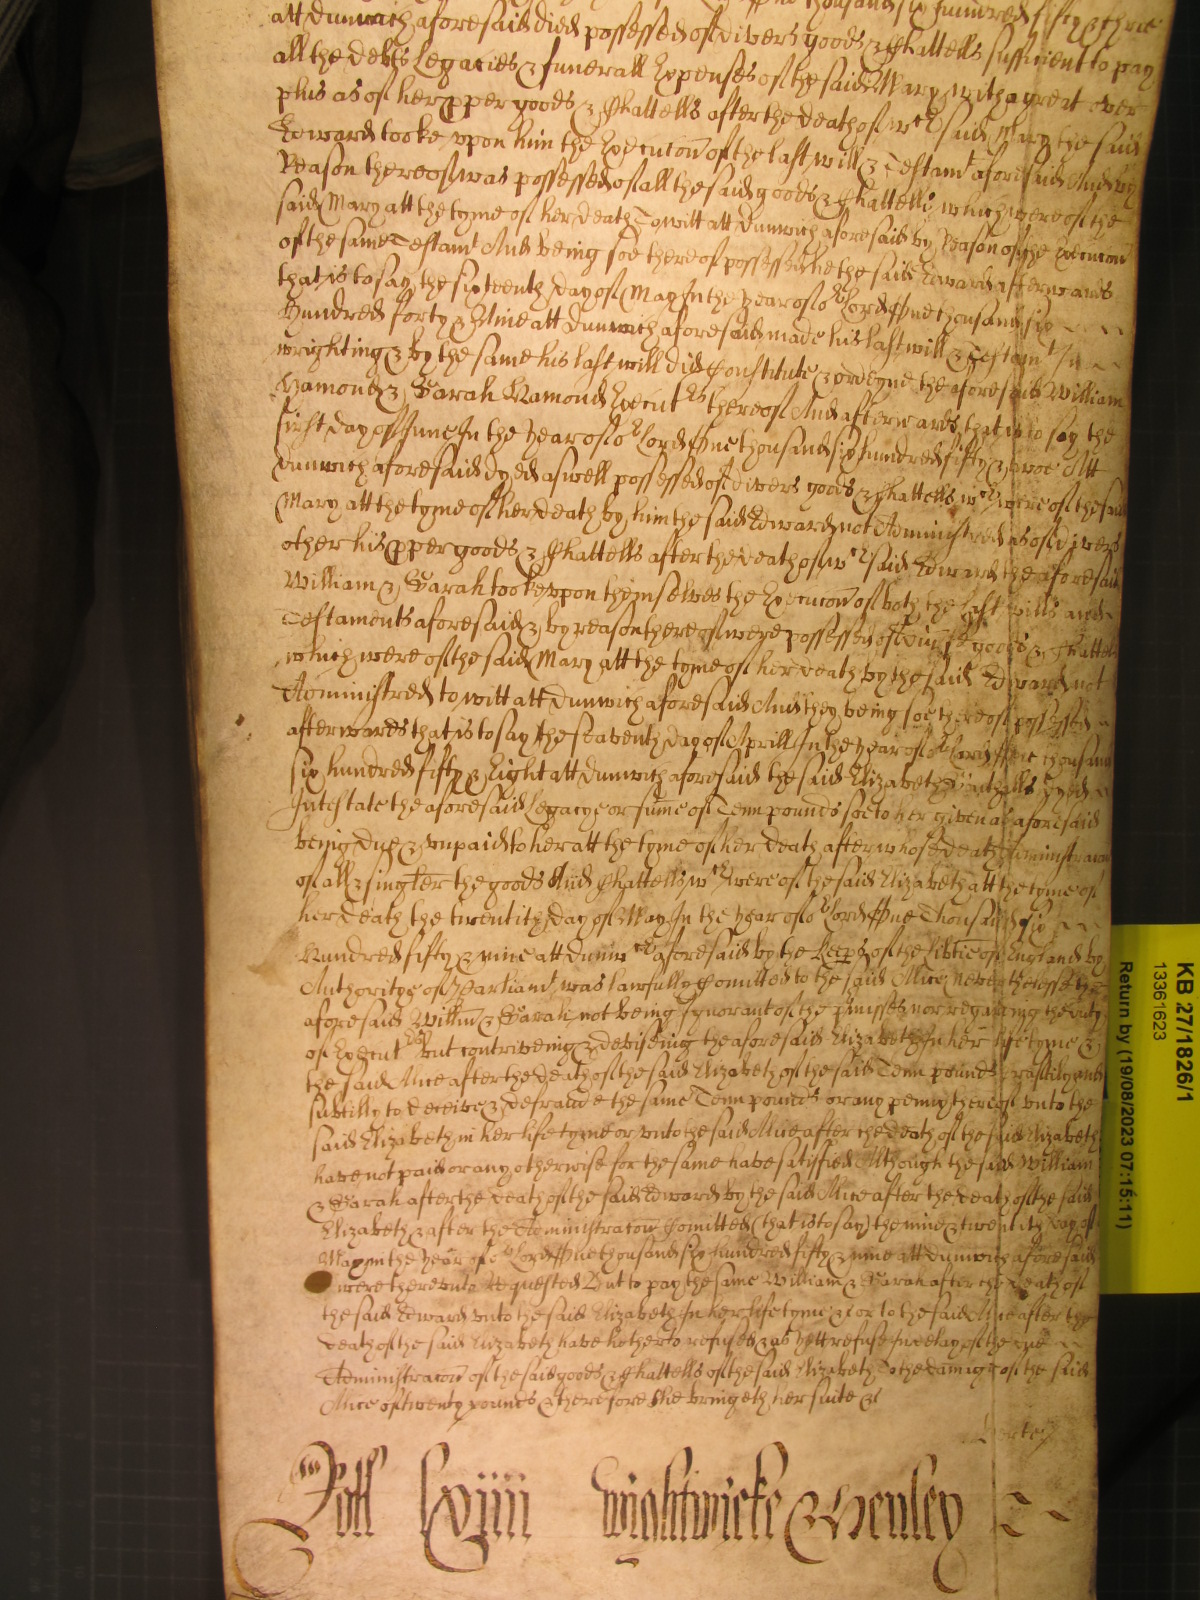 One thousand six hundred fifty & three
att Dunwich aforesaid died possessed of divers goods & Chattells sufficient to pay
all the debts Legacies & funerall Expenses of the said Mary with a great over
plus as of her pper goods & Chattells after the death of wch said Mary the said
Edward tooke vpon him the Execucon of the last will & Testamt aforesaid And by
Reason thereof was possessed of all the said goods & Chattells which were of the
said Mary att the tyme of her death To witt att Dunwich aforesaid by Reason of the Execucon
of the same Testamt And being soe thereof possessed he the said Edward afterwards
that is to say the sixteenth day of May In the year of or Lord One thousand six
Hundred forty & Nine att Dunwich aforesaid made his last will & Testamt In
wrighting & by the same his last will did Constitute & ordeyne the aforesaid William
Hamond & Sarah Hamond Executrs thereof And afterwards that is to say the
first day of June In the year of or Lord One thousand six hundred fifty & twoe Att
Dunwich aforesaid dyed aswell possessed of divers goods & Chattells wch were of the said
Mary att the tyme of her death by him the said Edward not Administred as of divers
other his pper goods & Chattells after the death of wch said Edward the aforesaid
William & Sarah tooke vpon themselves the Execucon of both the last wills and
Testaments aforesaid & by reason thereof were possessed of goods & Chattells
which were of the said Mary att the tyme of her death by the said Edward not
Administred to witt att Dunwich aforesaid And they being soe thereof possessed
afterwards that is to say the seaventh day of Aprill In the year of or Lord One thousand
six hundred fifty & Eight att Dunwich aforesaid the said Elizabeth dyed
Intestate the aforesaid Legacye or sume of Tenn pounds soe to her given as aforesaid
being due & vnpaid to her att the tyme of her death after whose death Administracon
of all & singler the goods And Chattells wch were of the said Elizabeth att the tyme of
her death the twentith day of May In the year of or Lord One Thousand six
Hundred fifty & nine att Dunwch aforesaid by the Keeps of the libtie of England by
Authoritye of Parliamt was lawfully Comitted to the said Alice neverthelesse the
aforesaid Willm & Sarah not being ignorant of the pmisses nor regarding the duty
of Execut but contriveing & deviseing the aforesaid Elizabeth In her life tyme &
the said Alice after the death of the said Elizabeth of the said Tenn pounds craftily and
subtilly to deceive & defraude the same Tenn pounds or any penny thereof vnto the
said Elizabeth in her life tyme or vnto the said Alice after the death of the said Elizabeth
have not paid or any otherwise for the same have satisfied Although the said William
& Sarah after the death of the said Edward by the said Alice after the death of the said
Elizabeth & after the Administracon Comitted (that is to say) the nine & twentith day of
May in the year of or Lord One thousand six hundred fifty & nine att Dunwich aforesaid
were therevnto Requested But to pay the same William & Sarah after the death of
the said Edward vnto the said Elizabeth In her life tyme or to the said Alice after the
death of the said Elizabeth have hetherto refused & as yett refuse In delay of the due
Administracon of the said goods & Chattells of the said Elizabeth To the damage of the said
Alice of twenty pounds & therefore she bringeth her suite &c
Rotl lxiiii Wightwicke & Henley
KB 27/1826/1
13361623
Return by (19/08/2023 07:15:11)